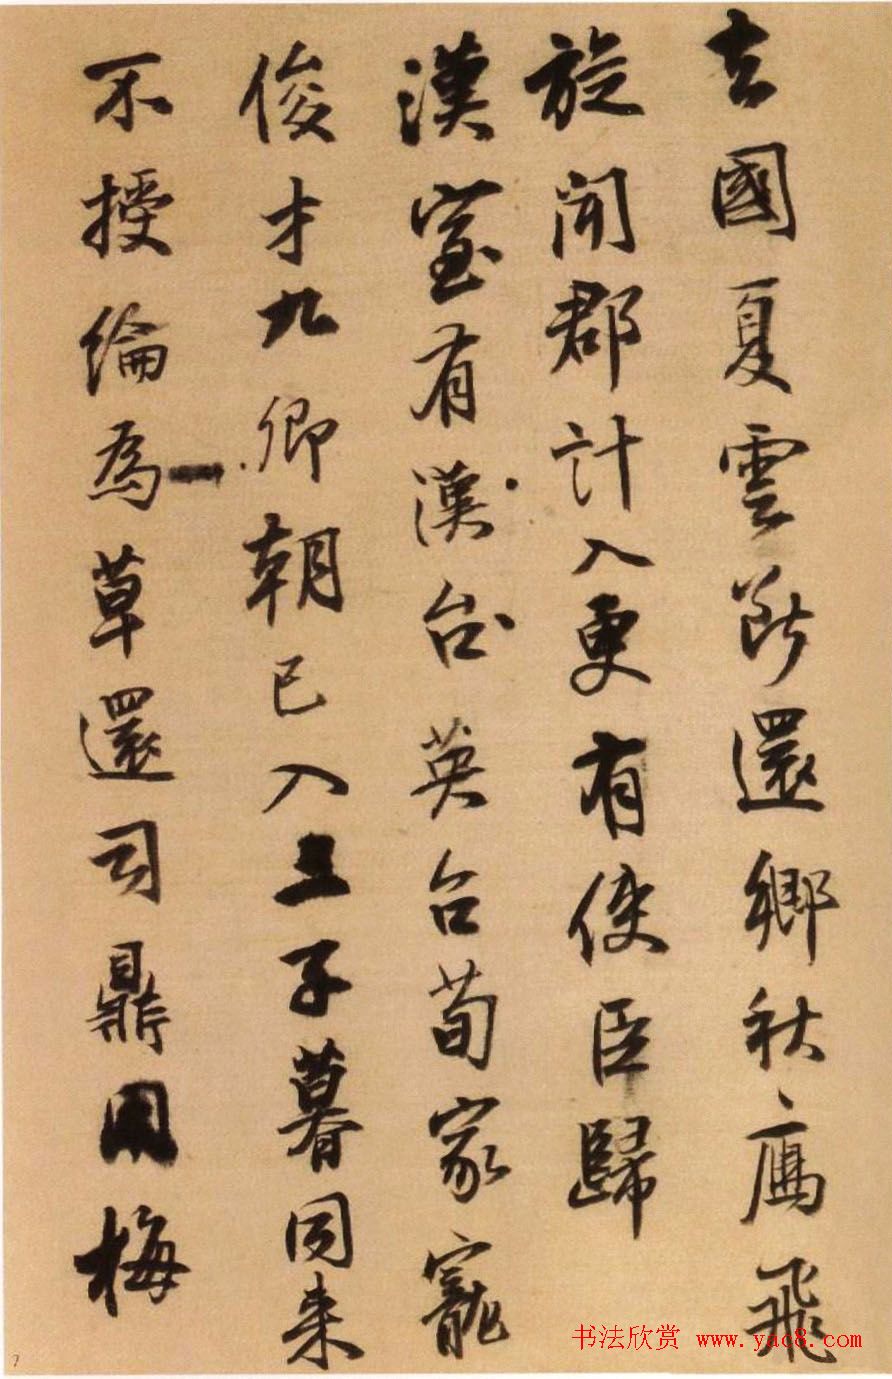 去國夏雲斷還鄉秋鴈飛
旋聞郡計入更有使臣歸
漢室有漢台英台荀家寵
俊才九卿朝已入三子暮同来
不授綸為草還司鼎用梅
书法欣赏 www.yac8.com
7